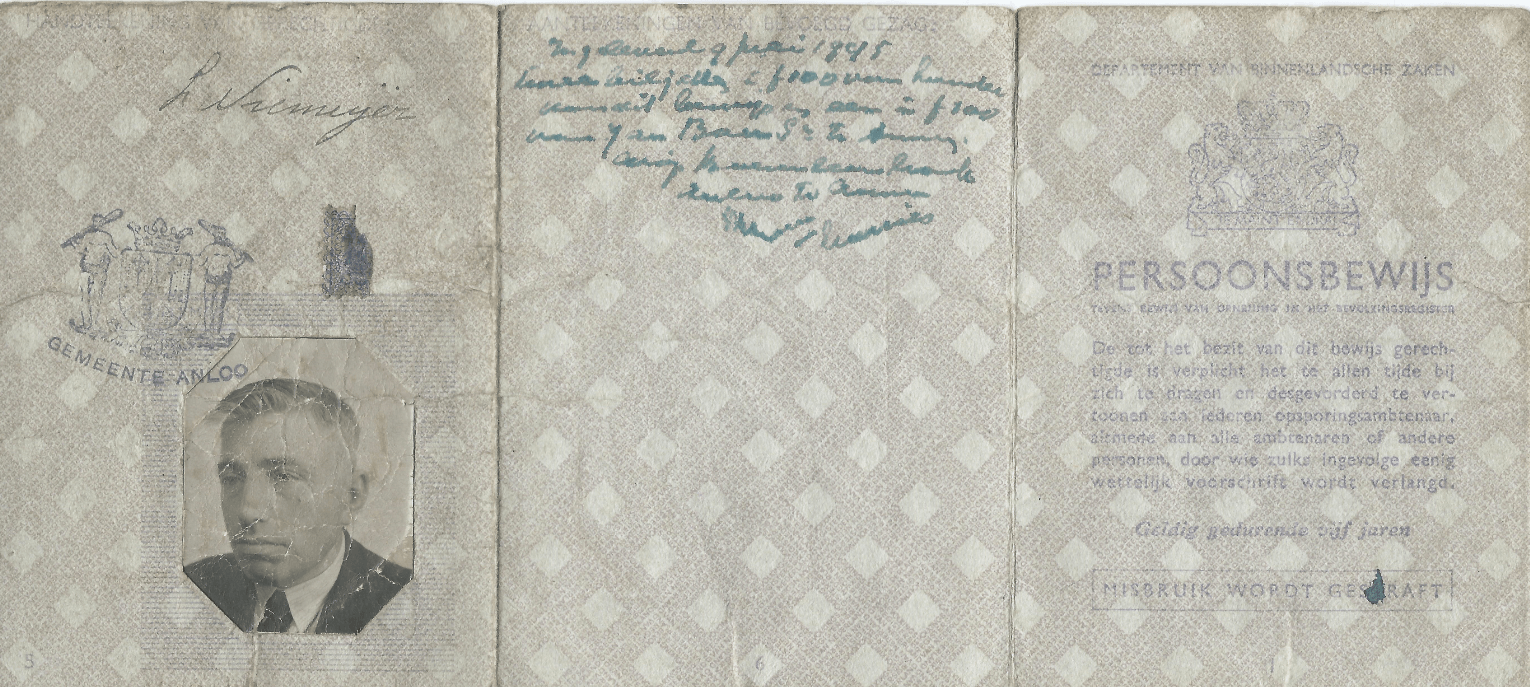 HANDTEEKENING
L Niemeijer
GEMEENTE ANLOO
5
AANTEEKENINGEN VAN BEVOEGD GEZAG
Ingeleverd 9 juli 1945
twee biljetten à f 100 van houder
van dit bewijs en een à f 100
van Jan
te
6
DEPARTEMENT VAN BINNENLANDSCHE ZAKEN
PERSOONSBEWIJS
TEVENS BEWIJS VAN OPNEMING IN HET BEVOLKINGSREGISTER
De tot het bezit van dit bewijs gerech-
tigde is verplicht het te allen tijde bij
zich te dragen en desgevorderd te ver-
toonen aan iederen opsporingsambtenaar,
alsmede aan alle ambtenaren of andere
personen, door wie zulks ingevolge eenig
wettelijk voorschrift wordt verlangd.
Geldig gedurende vijf jaren
MISBRUIK WORDT GESTRAFT
1